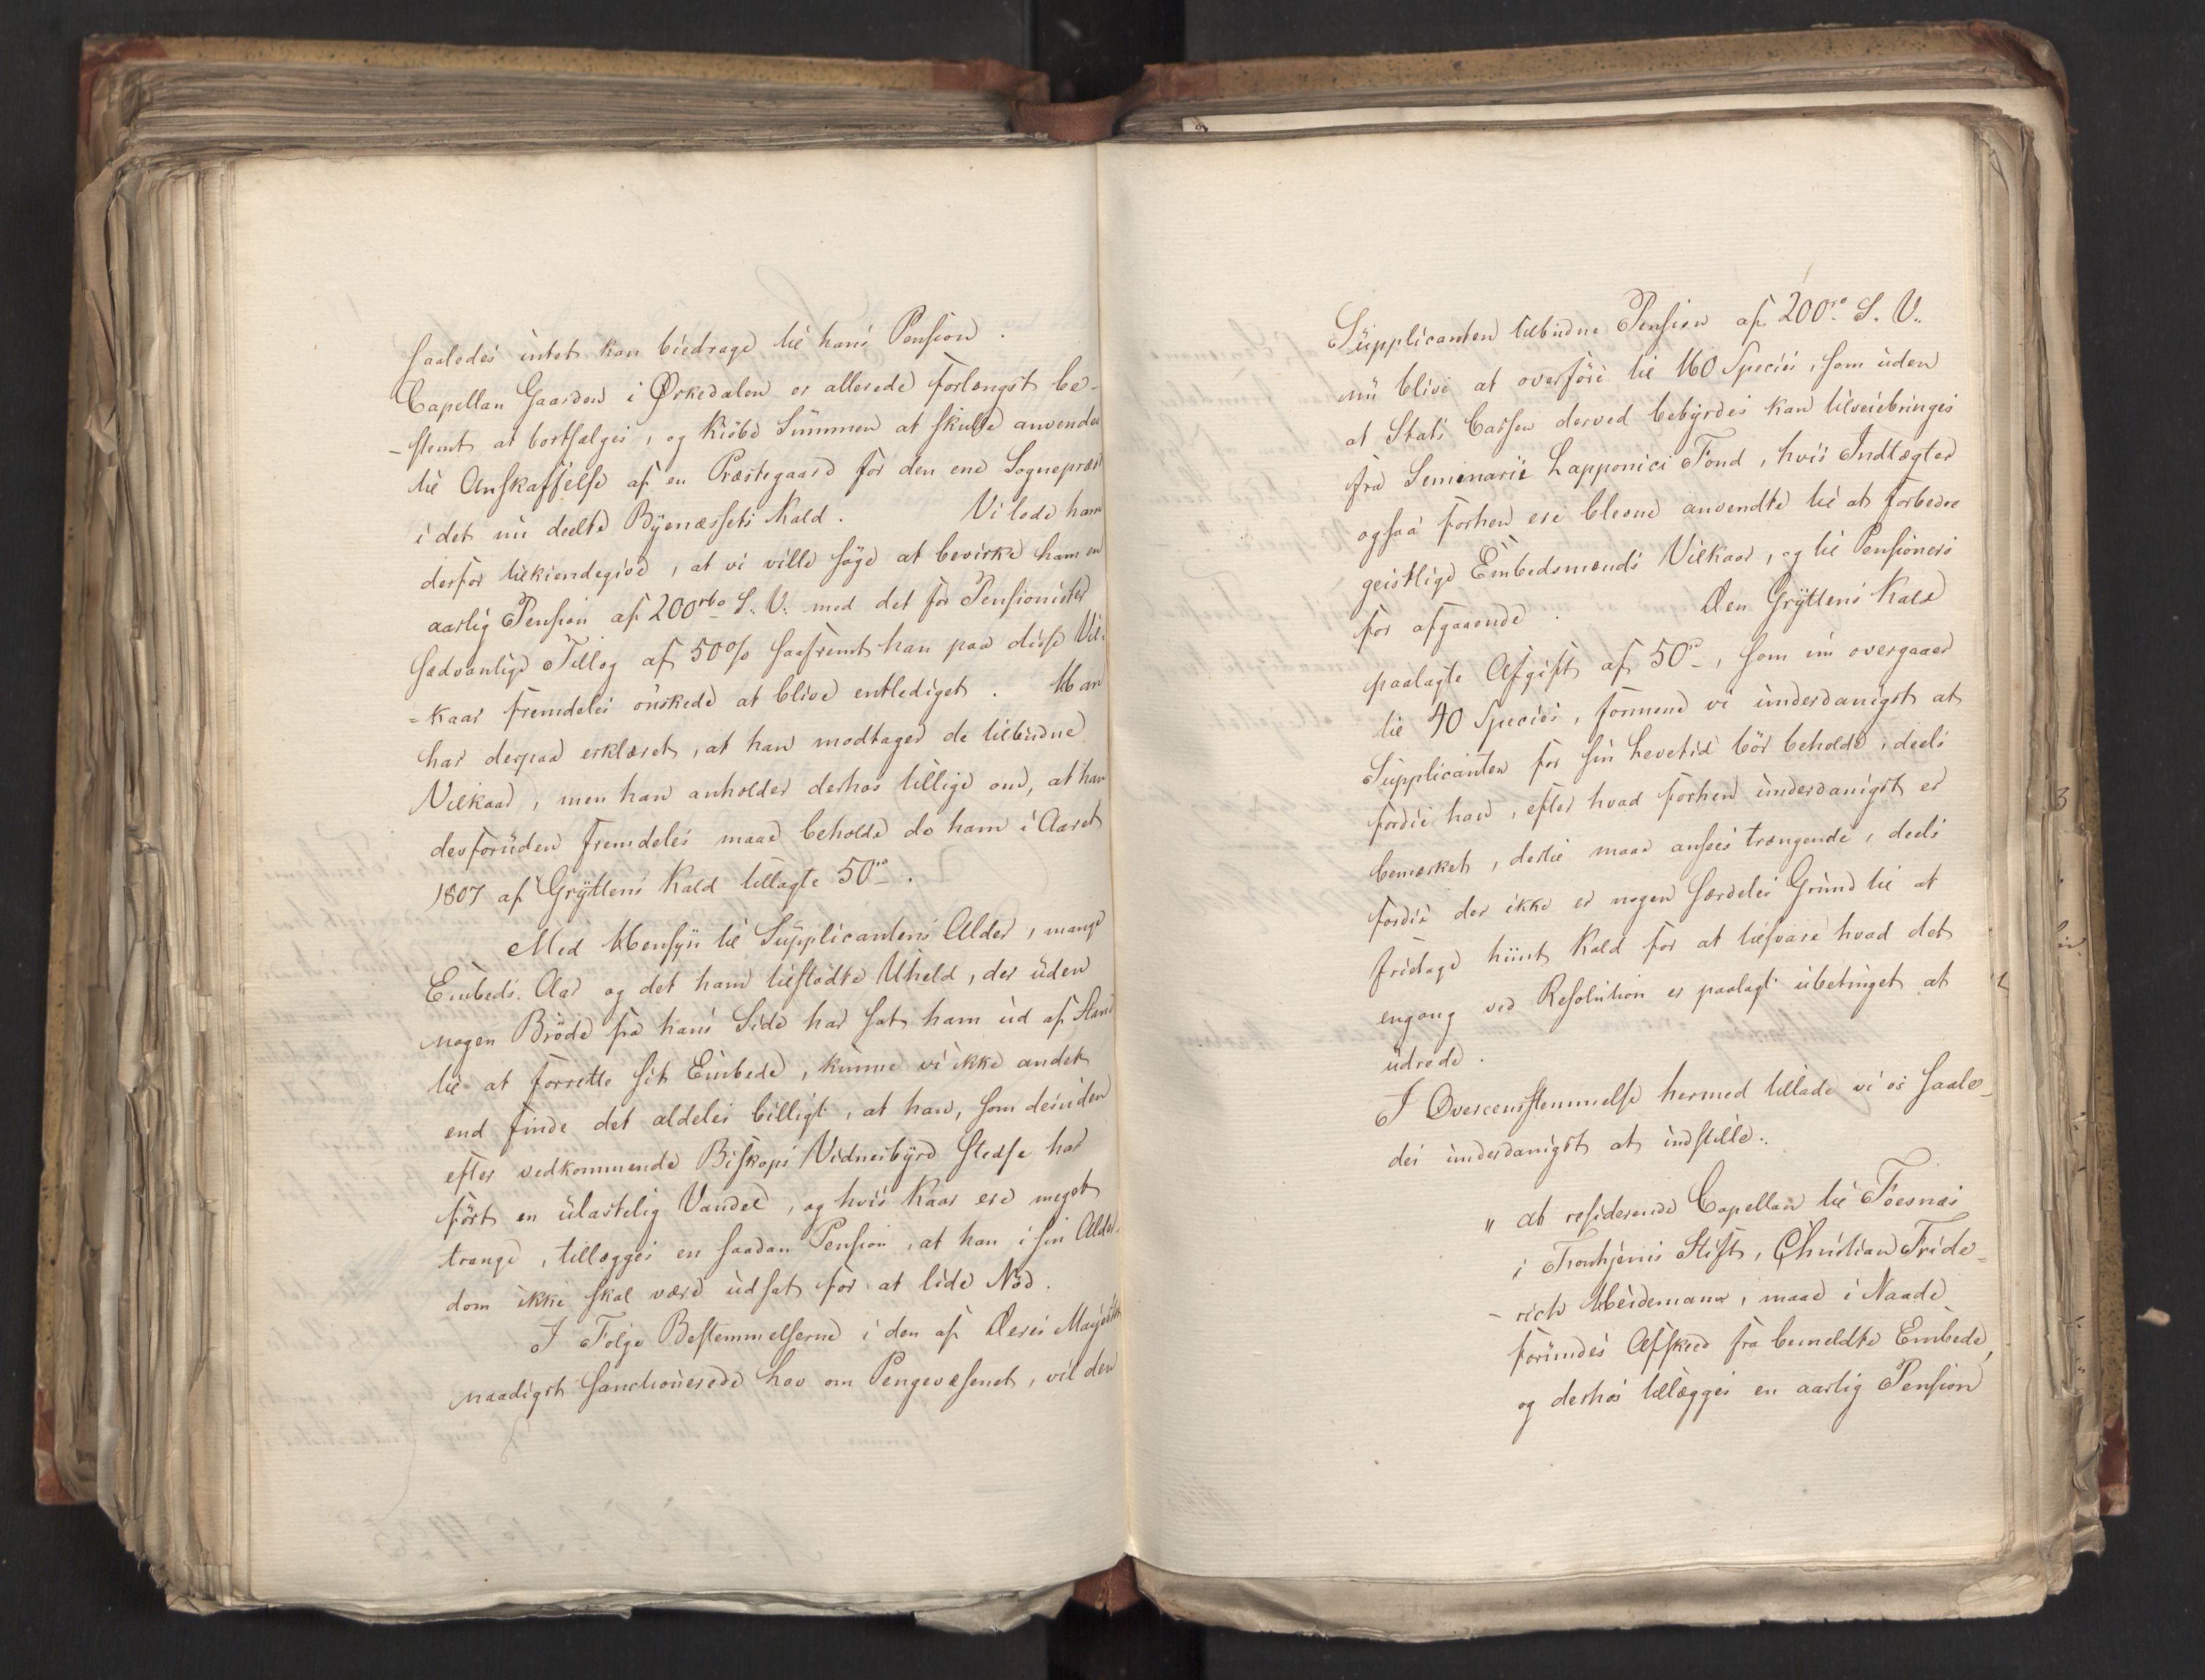 saaledes intet kan biedrage til hans Pension.
Capellan Gaarden i Ørkedalen er allerede forlængst be-
-stemt at bortsælges, og Kiøbe Summen at skulle anvendes
til Anskaffelse af en Præstegaard for den ene Sognepræst
i det nu deelte Byenæssets Kald. Vi lode ham
derfor tilkiendegive, at vi ville søge at bevirke ham en
aarlig Pension af 200 rbd S. V. med det for Pensionister
sædvanlige Tillæg af 50% saafremt han paa disse Vil-
=kaar fremdeles ønskede at blive entlediget. Han
har derpaa erklæret, at han modtager de tilbudne
Vilkaar, men han anholder derhos tillige om, at han
desforuden fremdeles maae beholde de ham i Aaret
1807 af Gryttens Kald tillagte 50 rd.
Med Hensyn til Supplicantens Alder, mange
Embeds Aar og det ham tilstødte Uheld, der uden
nogen Brøde fra hans Side har sat ham ud af Stand
til at forrette sit Embede, kunne vi ikke andet
end finde det aldeles billigt, at han, som desuden
efter vedkommende Biskops Vidnesbyrd stedse har
ført en ulastelig Vandel, og hvis Kaar ere meget
trange, tillægges en saadan Pension, at han i sin Alder-
dom ikke skal være udsat for at lide Nød.
I Følge Bestemmelserne i den af Deres Majestæt
naadigst sanctionerede Lov om Pengevæsenet, vil den
Supplicanten tilbudne Pension af 200 rd S. V.
nu blive at overføre til 160 Species, som uden
at Stats Cassen derved bebyrdes kan tilveiebringes
fra Seminarii Lapponici Fond, hvis Indtægter
ogsaa forhen ere blevne anvendte til at forbedre
geistlige Embedsmænds Vilkaar, og til Pensioners
for afgaaende. Den Gryttens Kald
paalagte Afgift af 50 rd, som nu overgaaer
til 40 Species, formene vi underdanigst at
Supplicanten for sin Levetid bør beholde, deels
fordi han, efter hvad forhen underdanigst er
bemærket, dertil maae ansees trængende, deels
fordi der ikke er nogen særdeles Grund til at
fritage hiint Kald for at tilsvare hvad det
engang ved Resolution er paalagt ubetinget at
udrede.
I Overeensstemmelse hermed tillade vi os saale-
des underdanigst at indstille:
" at residerende Capellan til Foesnæs
i Tronhjems Stift, Christian Fride-
-rich Heidemann, maae i Naade
forundes Afskeed fra bemeldte Embede,
og derhos tillægges en aarlig Pension